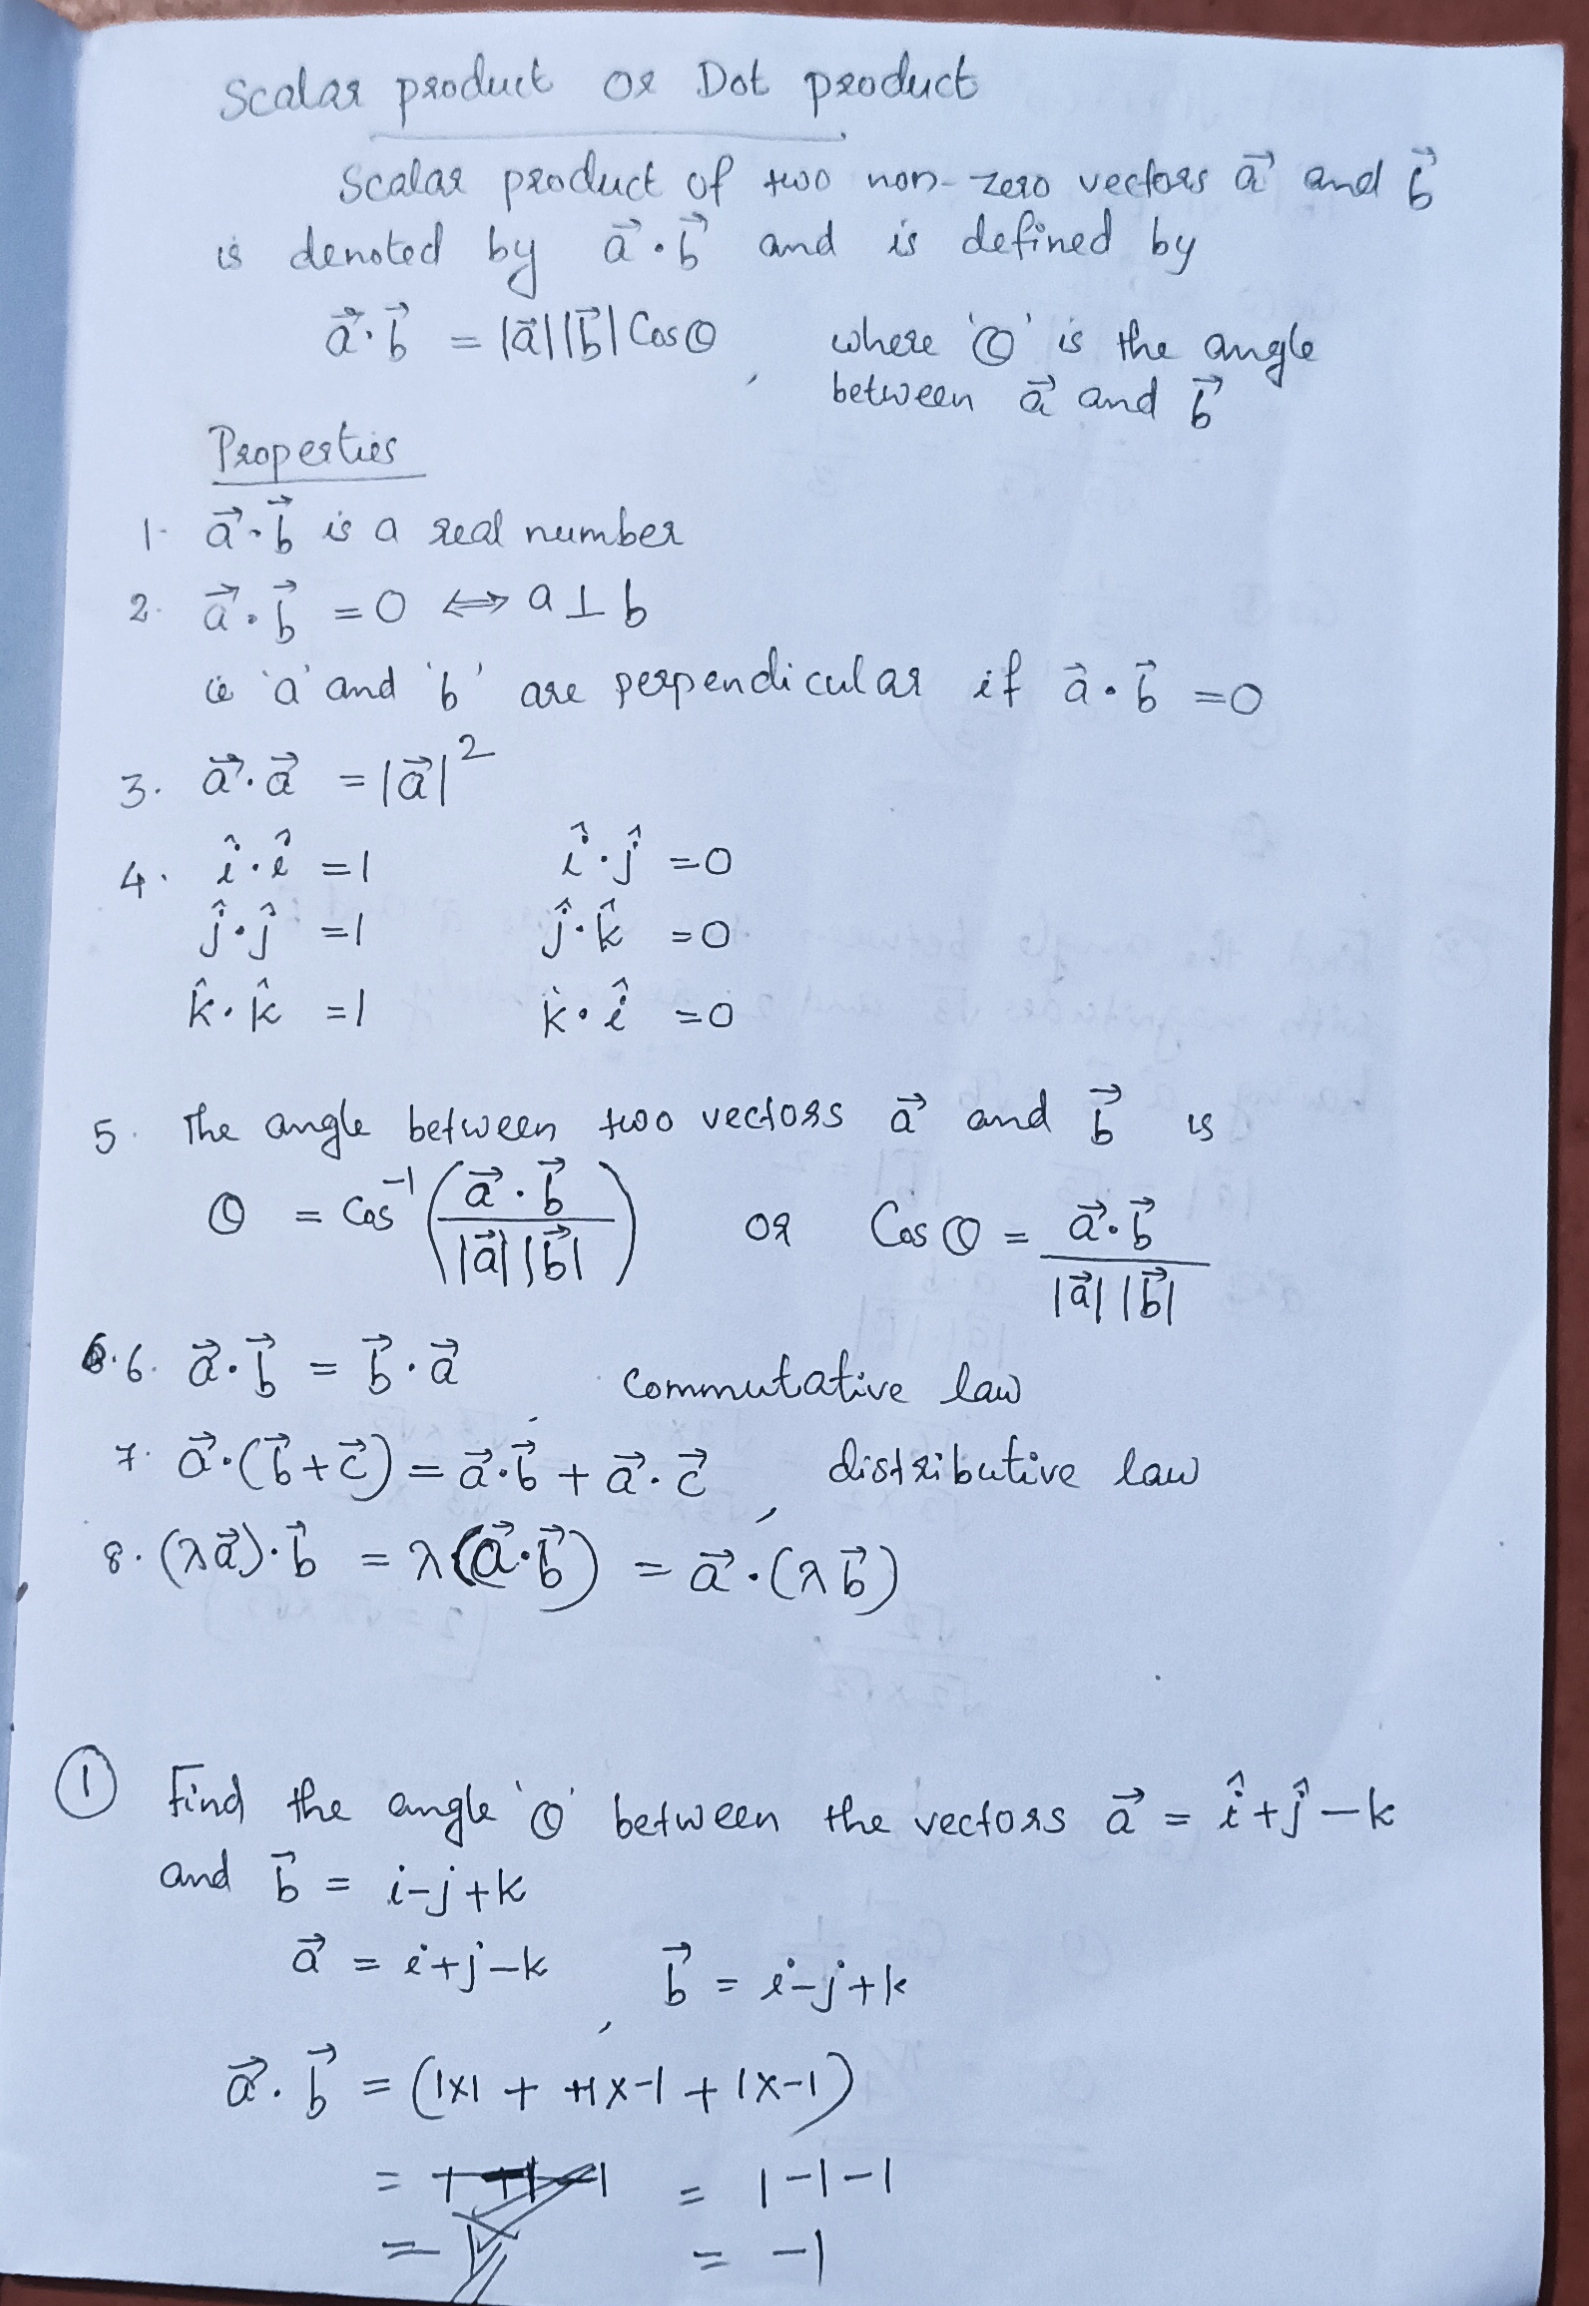 Scalar product or Dot product
Scalar product of two non-zero vectors a⃗ and b⃗
is denoted by a⃗·b⃗ and is defined by
a⃗·b⃗ = |a⃗||b⃗| Cosθ, where 'θ' is the angle
between a⃗ and b⃗
Properties
1. a⃗·b⃗ is a real number
2. a⃗·b⃗ =0 ⟺ a⊥b
ie 'a' and 'b' are perpendicular if a⃗·b⃗ =0
3. a⃗·a⃗ =|a⃗|²
4. î·î =1 î·ĵ =0
ĵ·ĵ =1 ĵ·k̂ =0
k̂·k̂ =1 k̂·î =0
5. The angle between two vectors a⃗ and b⃗ is
θ = Cos⁻¹(a⃗·b⃗ / |a⃗||b⃗|) or Cosθ = a⃗·b⃗ / |a⃗||b⃗|
6. a⃗·b⃗ = b⃗·a⃗, commutative law
7. a⃗·(b⃗+c⃗) = a⃗·b⃗ + a⃗·c⃗, distributive law
8. (λa⃗)·b⃗ = λ(a⃗·b⃗) = a⃗·(λb⃗)
① Find the angle 'θ' between the vectors a⃗ = î+ĵ-k
and b⃗ = i-j+k
a⃗ = i+j-k, b⃗ = i-j+k
a⃗·b⃗ = (1x1 + +1x-1 + 1x-1)
= 1-1-1
= -1